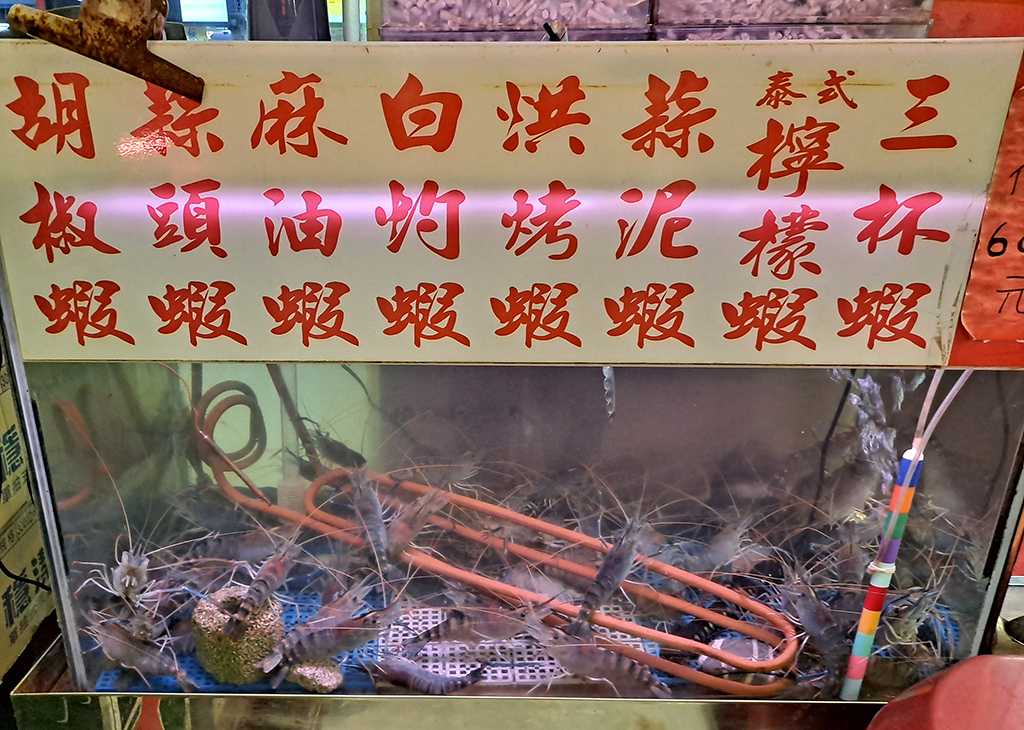 胡椒蝦
蒜頭蝦
麻油蝦
白灼蝦
烘烤蝦
蒜泥蝦
泰式檸檬蝦
三杯蝦
元